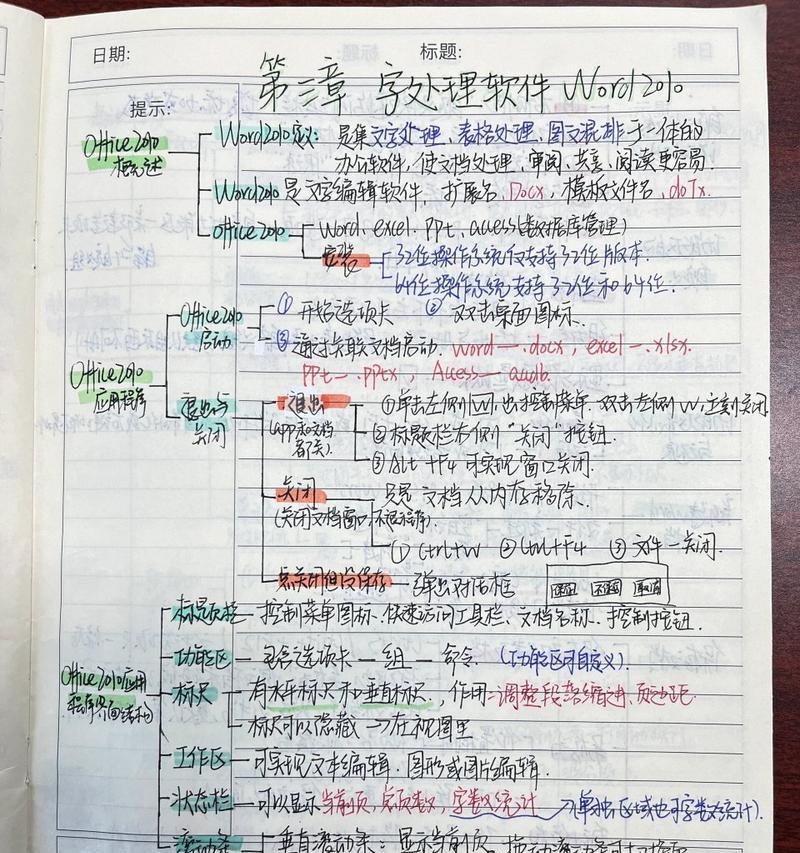 日期:
标题:
第三章 字处理软件 Word2010
提示:
Office2010概述
Word2010定义: 是集文字处理、表格处理、图文混排于一体的
办公软件, 使文档处理、审阅、共享、阅读更容易.
Word2010是文字编辑软件, 扩展名.Docx, 模板文件名.doTx.
office2010 Word. excel. ppt. access(数据库管理)
安装 32位操作系统仅支持32位版本.
64位操作系统支持32位和64位.
Office2010应用程序
Office2010启动 ① 开始选项卡 ② 双击桌面图标.
③ 通过关联文档启动. Word—.docx, excel—.xlsx.
PPt—.pptx, Access—.accdb.
退出与关闭
退出 ①单击左侧W, 出控制菜单. 双击左侧W, 立刻关闭
(app和文档都关). ②标题栏右侧“关闭”按钮.
③Alt+F4可实现窗口关闭.
关闭 只是文档从内存移除.
(关闭文档窗口, 不退程序).
① Ctrl+W ② Ctrl+F4 ③ 文件—关闭.
点关闭但没保存 — 弹出对话框 保存 不保存 取消
Office2010应用程序界面结构
标题栏 — 控制菜单图标、快速访问工具栏、文档名称、控制按钮.
功能区 — 包含选项卡—组—命令. (功能区可自定义).
标尺 有水平标尺和垂直标尺, 作用: 调整段落缩进、页边距.
标尺可以隐藏 → 在视图里
工作区 — 可实现文本编辑、图形或图片编辑.
状态栏 — 可以显示当前页, 总页数, 字数统计 →(单独区域也可字数统计).
滚动条 垂直滚动条: 显示当前页